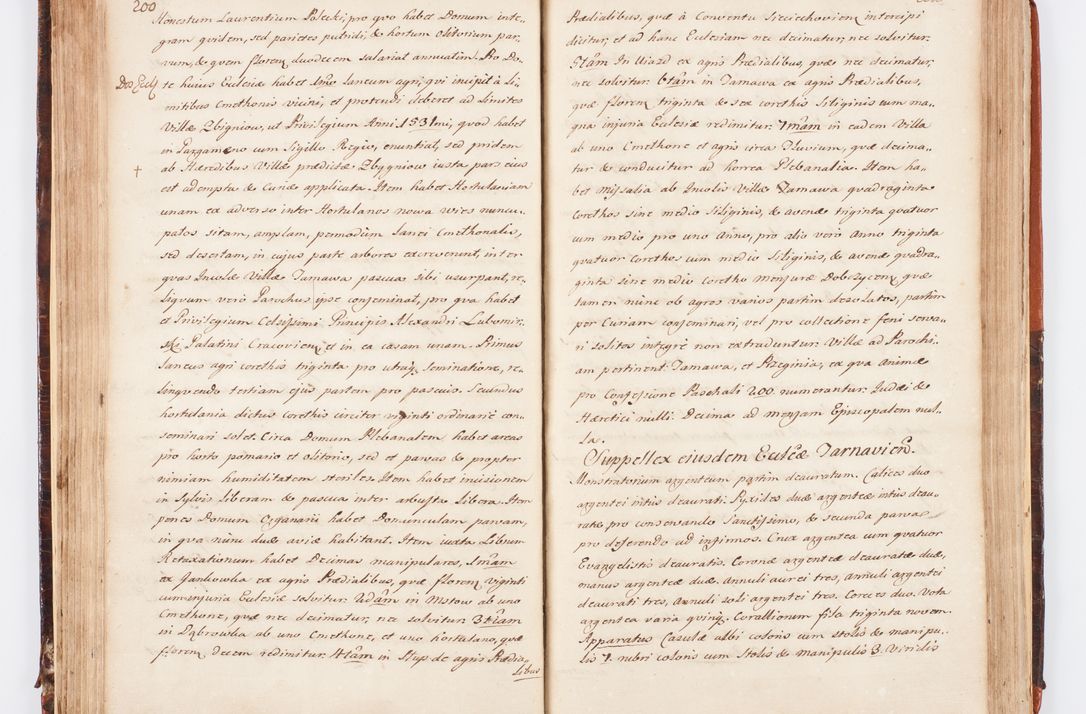 200
Honestum Laurentium Polecki, pro quo habet Domum inte-
gram quidem, sed parietes putridi, & hortum olitorium par,
vum, & quem floren duodecem salariat annuatim. Pro Do-
Dos Eccl
te huius Eccleiæ habet 1mo Laneum agri, qui incipit à Li-
mitibus Cmethonis vicini, et protendi deberet ad Limites
Villæ Zbigniow, ut Privilegium Anni 1531mi, quod habet
in Pargameno cum Sigillo Regio, enuntiat, sed pridem
†
ab Hæredibus Villæ prædictæ Zbygniow iusta pars eius
est adempta & Curiæ applicata. Item habet Hortulaniam
unam ex adverso inter Hortulanos nowa wies nuncu-
patos sitam, amplam, permodum Lanei Cmethonalis,
sed desertam, in cujus parte arbores excreverunt, inter
quas Incolæ Villæ Tarnawa pascua sibi usurpant, re-
liquum vero Parochus ipse conseminat, pro qua habet
et Privilegium Celsissimi Principis Alexandri Lubomir-
ski Palatini Cracovien et in ea casam unam. Primus
Laneus agri corethis triginta pro utraq seminatione, re-
linquendo tertiam ejus partem pro pascuis. Secundus
hortulania dictus corethis circiter viginti ordinariè con-
seminari solet. Circa Domum Plebanalem habet areas
pro horto pomario et olitorio, sed et parvas & propter
nimiam humiditatem steriles. Item habet incisionem
in sylvis Liberam & pascua inter arbusta Libera. Item
penes Domum Organarii habet Domunculam parvam,
in qua nunc duæ aviæ habitant. Item iuxta Librum
Retaxationum habet Decimas manipulares, 1mam
ex Jankowka ex agris Prædialibus, quæ floren viginti
cum injuria Ecclesiæ solvitur. 2dam in Mstow ab uno
Cmethone, quæ nec decimatur, nec solvitur 3tiam
in Dąbrowka ab uno Cmethone, et uno hortulano, quæ
floren decem redimitur. 4tam in Stup de agris Prædia-
libus
Prædialibus, quæ à Conventu Sieciechovien intercipi
dicitur, et ad hanc Ecclesiam nec decimatur, nec solvitur.
5tam In Uiazd ex agris Prædialibus, quæ nec decimatur,
nec solvitur. 6tam in Tarnawa ex agris Prædialibus,
quæ floren triginta & sex corethis Siliginis cum ma-
gna injuria Ecclesiæ redimitur. 7mam in eadem Villa
ab uno Cmethone et agris circa Fluvium, quæ decima-
tur & conducitur ad horrea Plebanalia. Item ha-
bet missalia ab Incolis Villæ Tarnawa quadraginta
corethos sine medio Siliginis, & avenæ triginta quatuor
cum medio pro uno Anno, pro alio verò Anno triginta
quatuor corethos cum medio Siliginis, & avenæ quadra-
ginta sine medio coretho mensuræ Dobczycen, quæ
tamen nunc ob agros varios partim desolatos, partim
per Curiam conseminari, vel pro collectione feni serva-
ri solitos integrè non extraduntur. Villæ ad Parochi-
am pertinent Tarnawa, et Rzeginia, ex qua animæ
pro Confessione Paschali 200 numerantur. Judæi &
Hæretici nulli. Decima ad mensam Episcopalem nul-
la.
Suppellex eiusdem Eccleæ Tarnavien.
Monstratorium argenteum partim deauratum. Calices duo
argentei intus deaurati. Pyxides duæ argenteæ intus deau-
ratæ pro conservando Sanctissimo, & secunda parva
pro deferendo ad infirmos. Crux argentea cum quatuor
Evangelistis deauratis. Coronæ argenteæ deauratæ duæ,
manus argenteæ duæ, annuli aurei tres, annuli argentei
deaurati tres, Annuli soli argentei tres. Corces duo. Vota
argentea varia quinq. Corallionum fila triginta novem.
Apparatus Casulæ albi coloris cum stolis & manipu-
lis 7. rubri coloris cum stolis & manipulis 3. Viridis